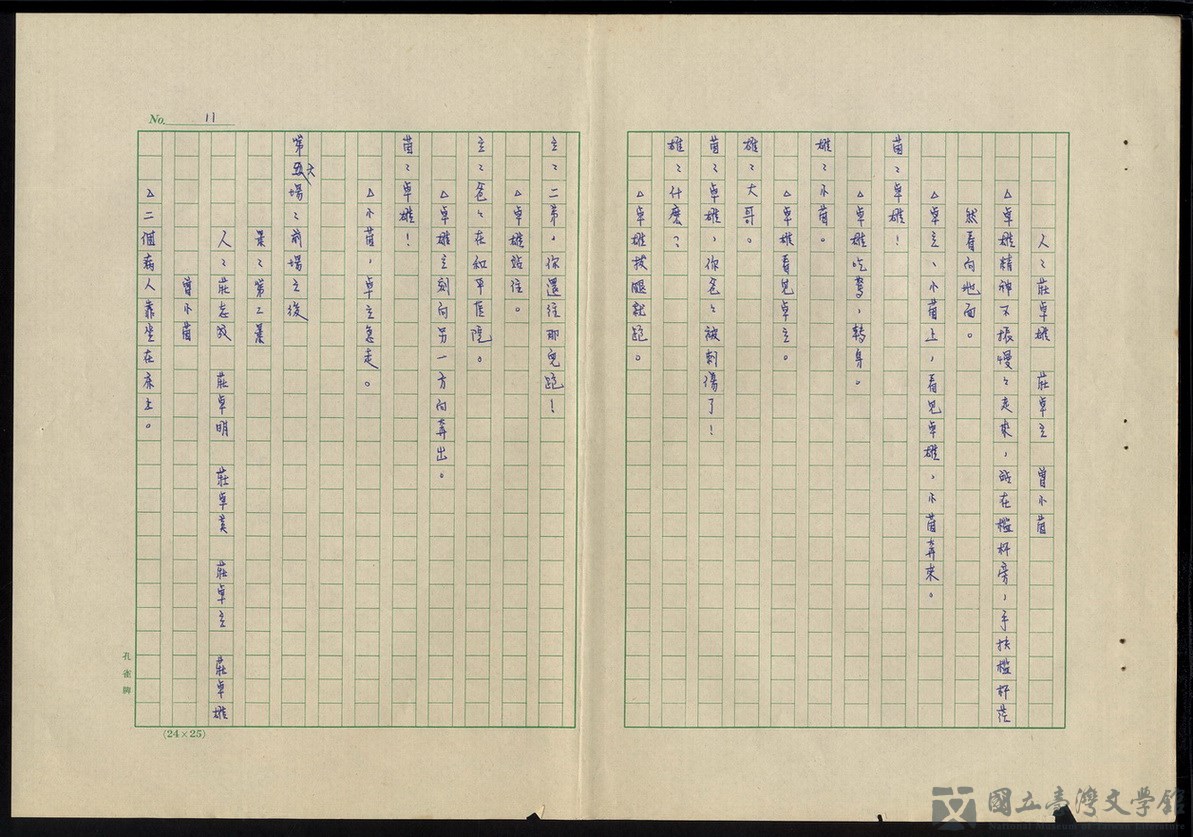 人：莊卓雄　莊卓立　曾小茵
△卓雄精神不振慢々走來，站在檻杆旁，手扶檻杆茫
然看向地面。
△卓立、小茵上，看見卓雄，小茵奔來。
茵：卓雄！
△卓雄吃驚，轉身。
雄：小茵。
△卓雄看見卓立。
雄：大哥。
茵：卓雄，你爸々被刺傷了！
雄：什麽？
△卓雄拔腿就跑。
立：二弟，你還往那兒跑！
△卓雄站住。
立：爸々在和平医院。
△卓雄立刻向另一方向奔出。
茵：卓雄！
△小茵，卓立急走。
第六場：前場之後
景：第二景
人：莊志　莊卓明　莊卓美　莊卓立　莊卓雄
曾小茵
△二個病人靠坐在床上。
No. 11
孔雀牌
(24×25)
國立臺灣文學館
National Museum of Taiwan Literature